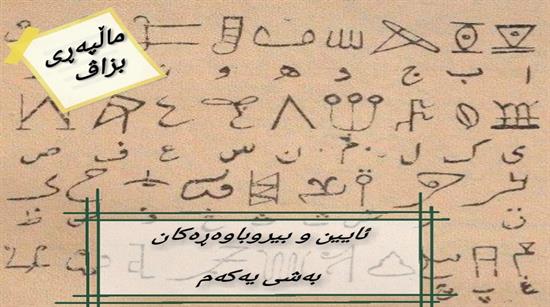 ماڵپەڕی
بزاڤ
ا ب ج د ه و
ی ک ل م ن س ع ف ص
ئایین و بیروباوەڕەکان
بەشی یەکەم